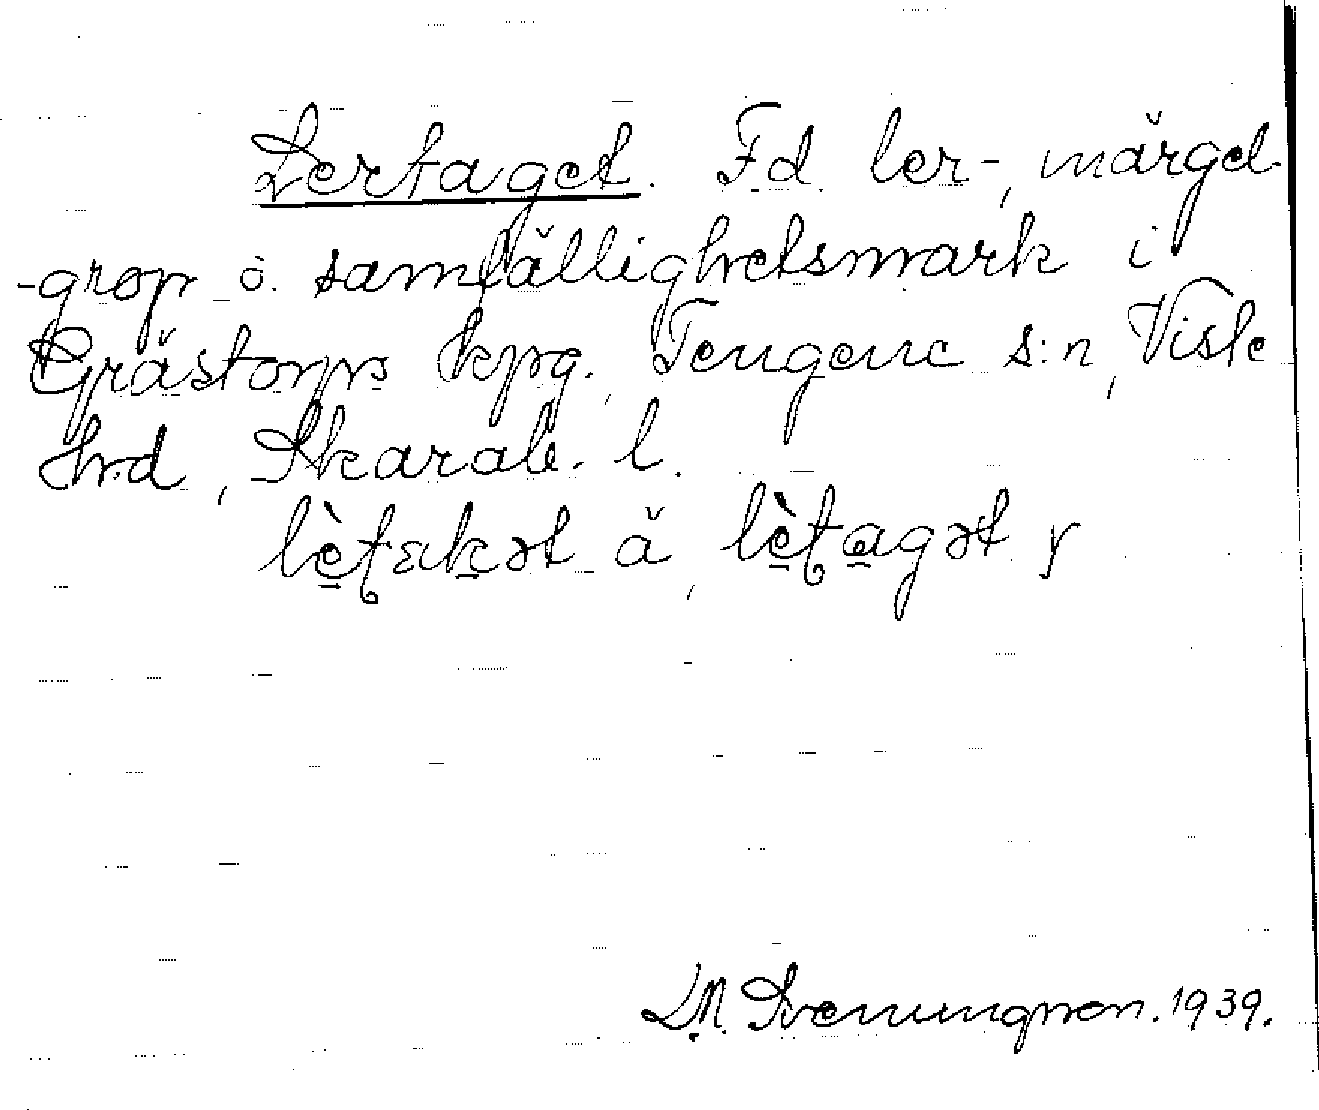 Lertaget. Fd. ler-, märgel-
-grop o. samfällighetsmark i
Grästorps kpg, Tengene s:n, Viste
hrd, Skarab. l.
lètakət ä, lètagət y
L.M. Svenungson. 1939.